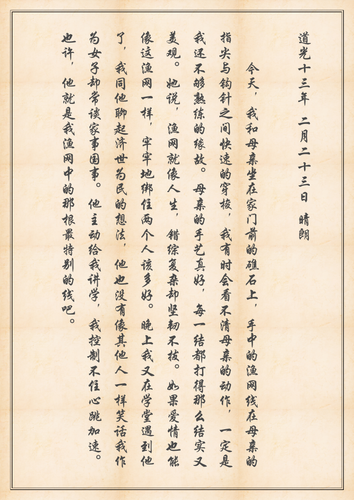 道光十三年 二月二十三日 晴朗
今天，我和母亲坐在家门前的礁石上，手中的渔网线在母亲的
指尖与钩针之间快速的穿梭，我有时会看不清母亲的动作，一定是
我还不够熟练的缘故。母亲的手艺真好，每一结都打得那么结实又
美观。她说，渔网就像人生，错综复杂却坚韧不拔。如果爱情也能
像这渔网一样，牢牢地绑住两个人该多好。晚上我又在学堂遇到他
了，我同他聊起济世为民的想法，他也没有像其他人一样笑话我作
为女子却常谈家事国事。他主动给我讲学，我控制不住心跳加速。
也许，他就是我渔网中的那根最特别的线吧。